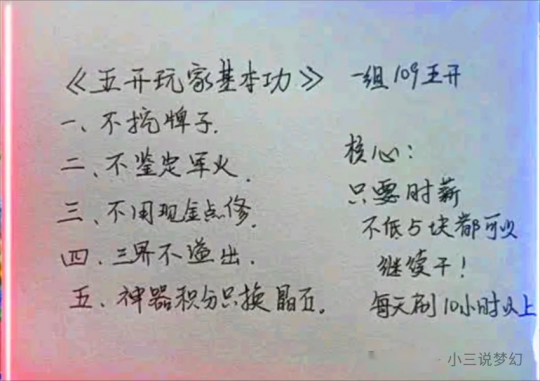 《五开玩家基本功》
一、不挖牌子.
二、不鉴定军火.
三、不用现金点修.
四、三界不溢出.
五、神器积分只换晶石.
一组109五开
核心:
只要时薪
不低占块都可以
继续干!
每天刷10小时以上
小三说梦幻